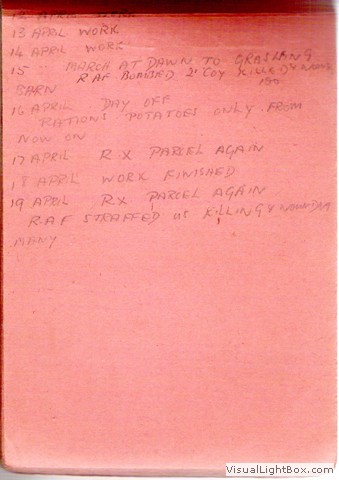 12 APRIL WORK
13 APRIL WORK
14 APRIL WORK
15 " MARCH AT DAWN TO GRASLANG
RAF BOMBED 2 COY KILLED &
BARN
16 APRIL DAY OFF
RATIONS POTATOES ONLY FROM
NOW ON
17 APRIL RX PARCEL AGAIN
18 APRIL WORK FINISHED
19 APRIL RX PARCEL AGAIN
RAF STRAFFED US KILLING & WOUNDING
MANY
VisualLightBox.com